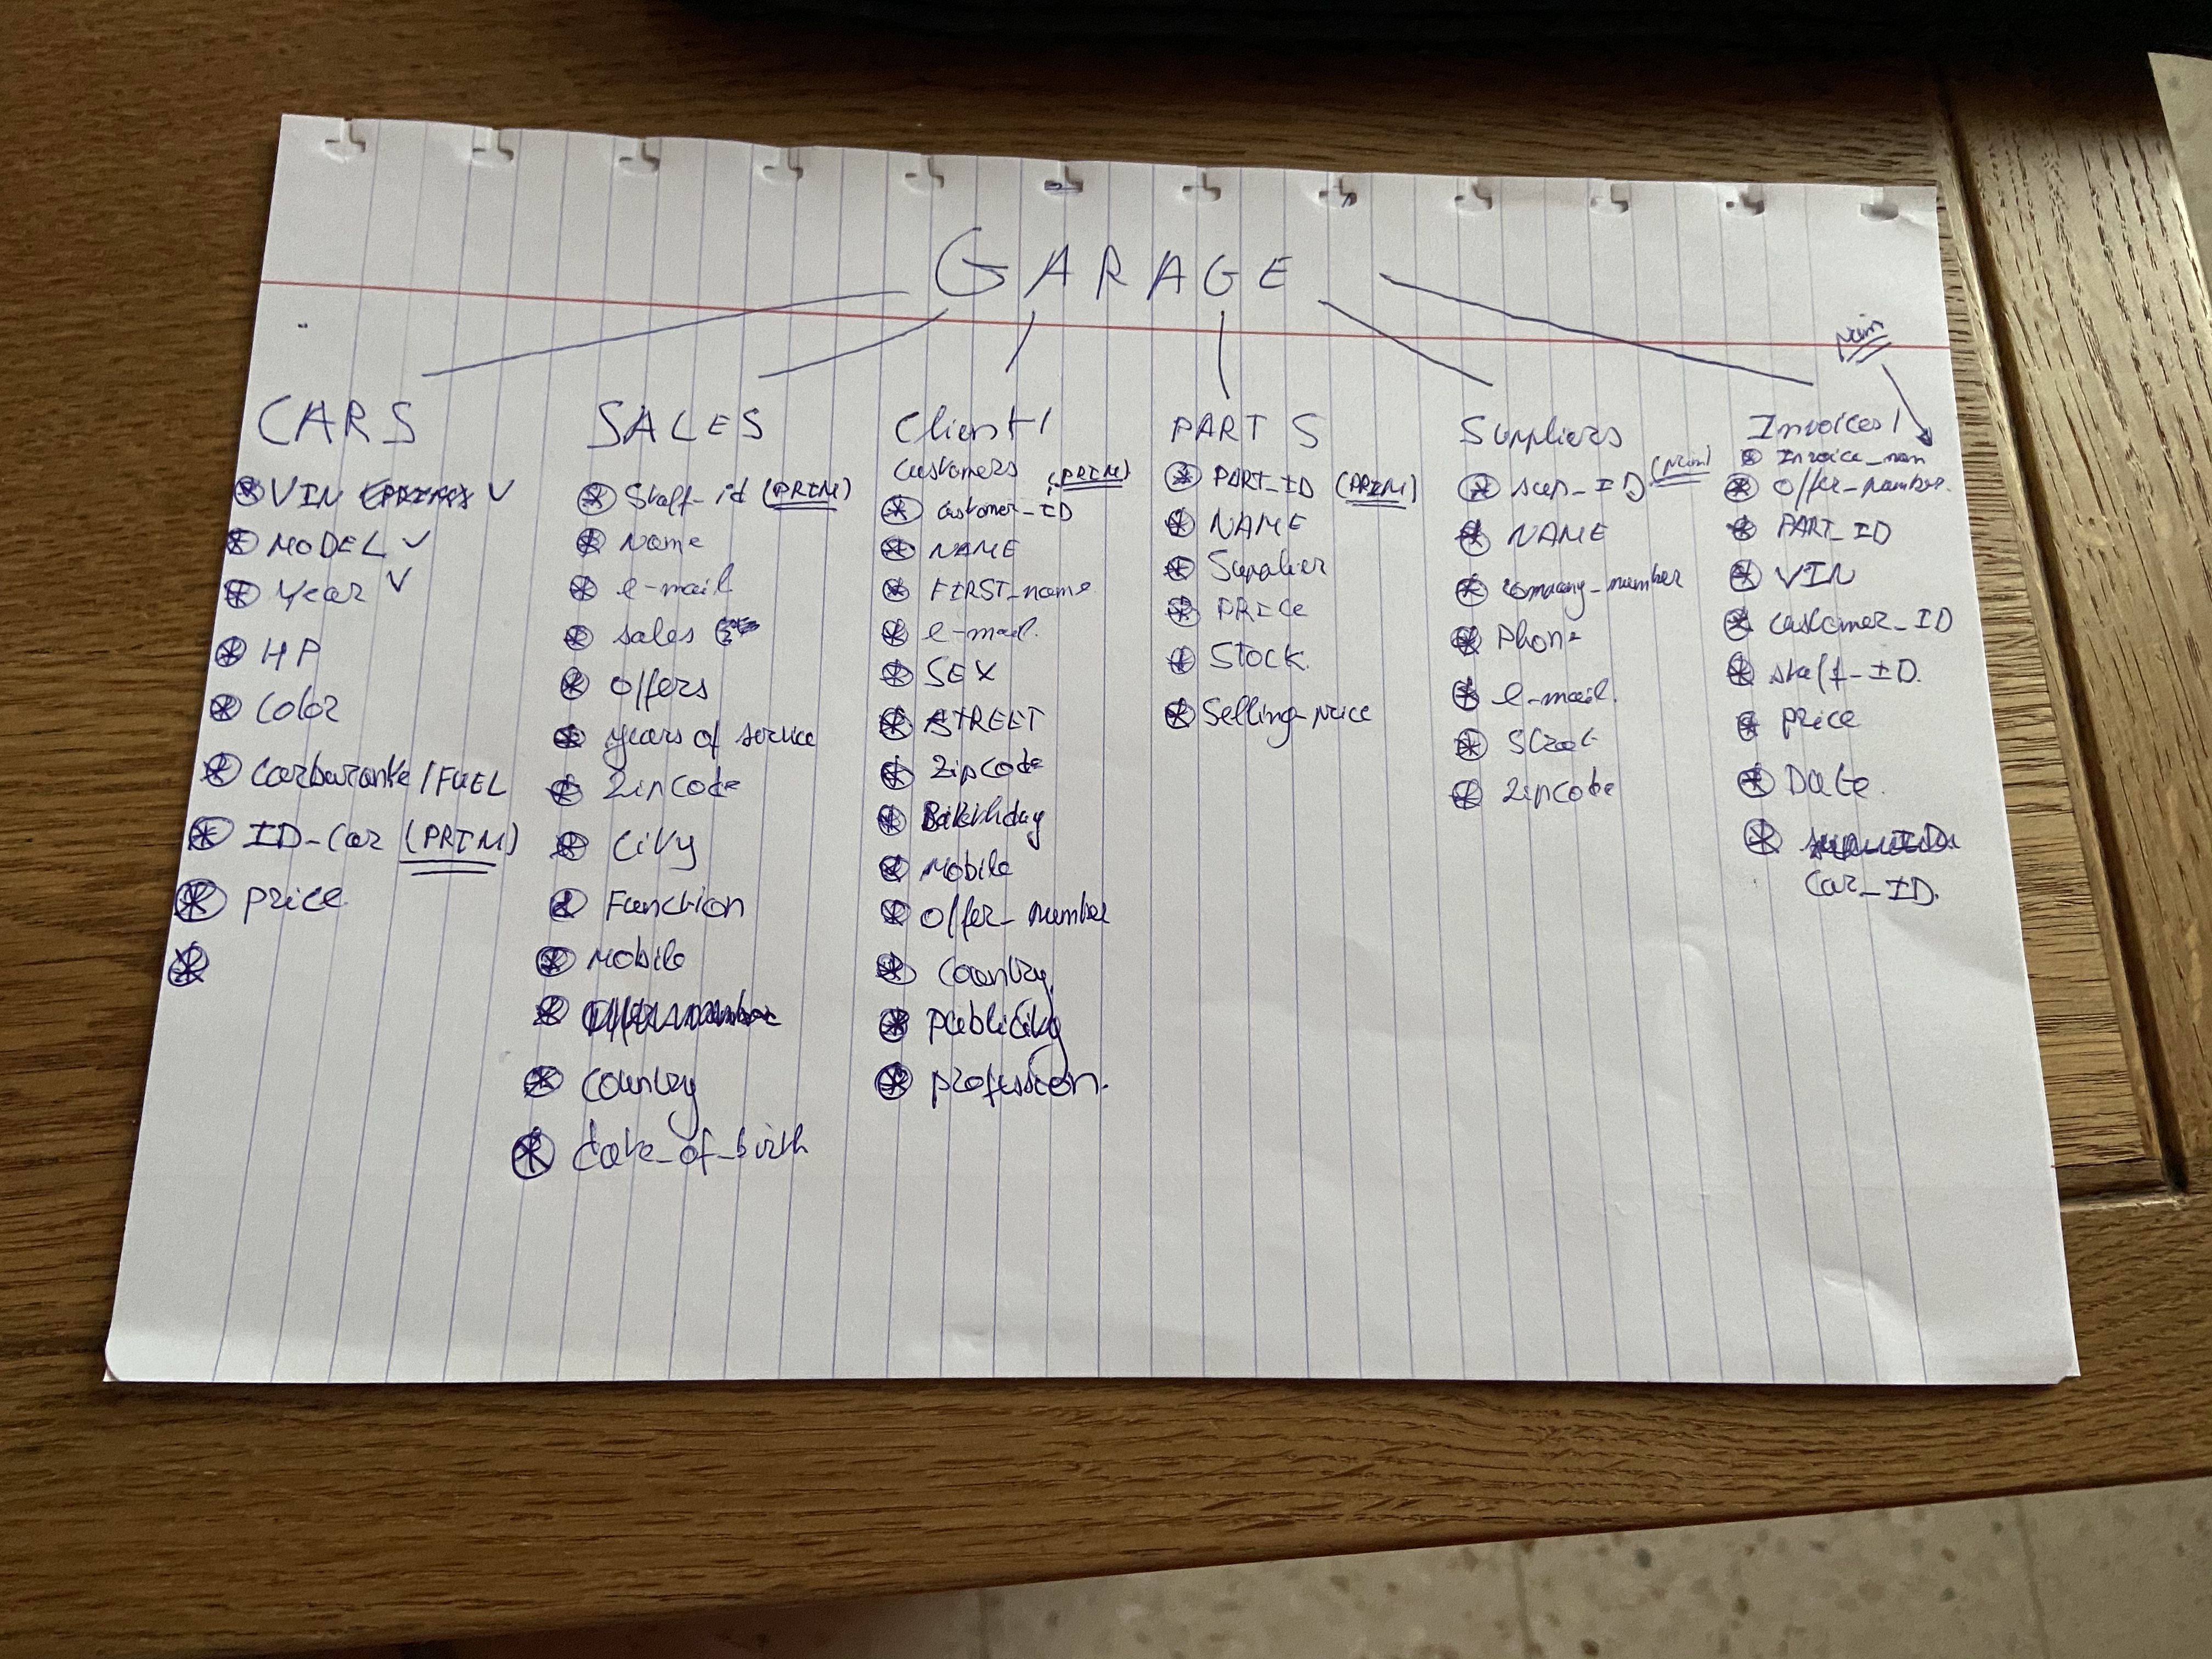 GARAGE
CARS
VIN
MODEL
Year
HP
Color
Carburante / FUEL
ID-Car (PRIM)
price
SALES
Staff_id (PRIM)
Name
e-mail
sales
offers
years of service
Zipcode
City
Function
Mobile
Country
date_of_birth
Client /
customers (PRIM)
customer_ID
NAME
FIRST_name
e-mail.
SEX
STREET
Zipcode
Birthday
Mobile
Offer_number
Country
publicity
profession.
PARTS
PART_ID (PRIM)
NAME
Supplier
PRICe
Stock
Selling-price
Suppliers
sup_ID (Prim)
NAME
company_number
Phone
e-mail.
Street
Zipcode
Prim
Invoices /
Offer_number
PART_ID
VIN
customer_ID
staff_ID.
price
Date
Car_ID.